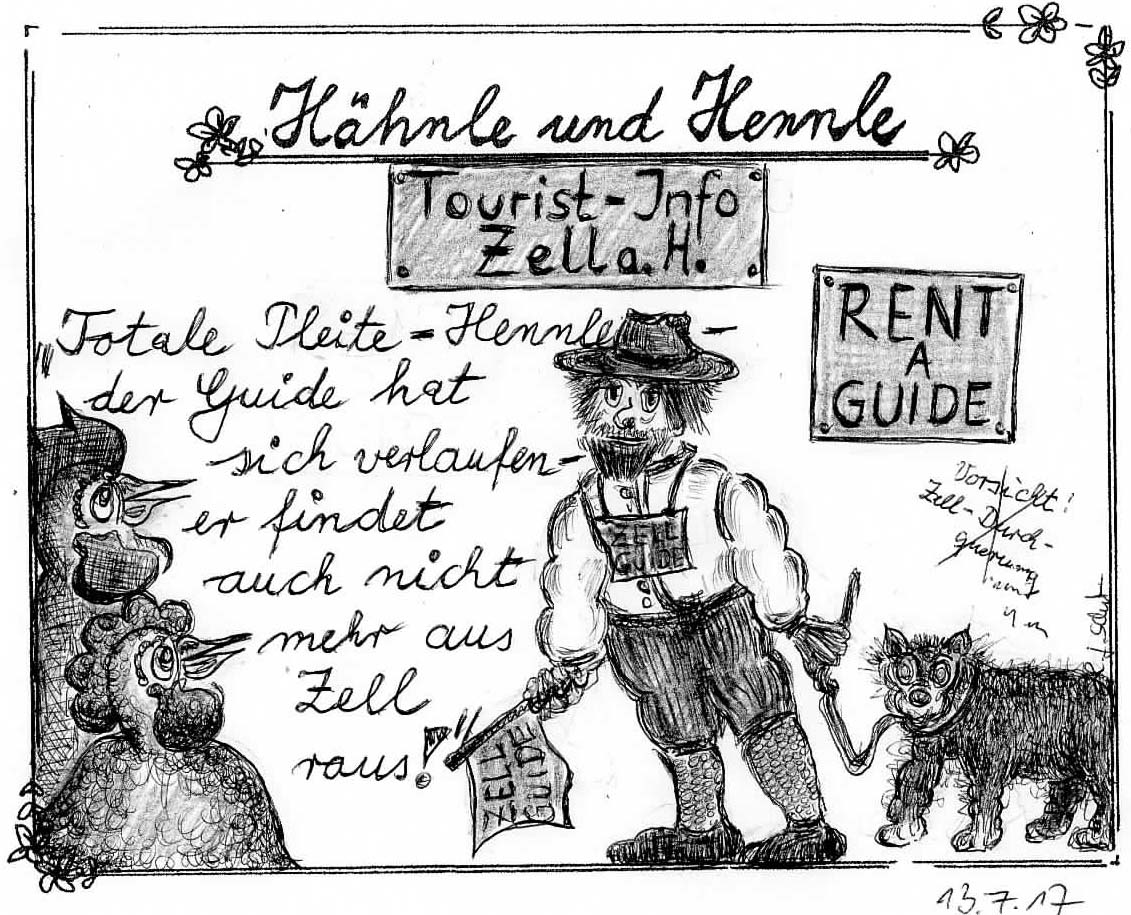 Hähnle und Hennle
Tourist-Info
Zell a. H.
RENT
A
GUIDE
"Totale Pleite-Hennle-
der Guide hat
sich verlaufen-
er findet
auch nicht
mehr aus
Zell
raus!"
ZELL
GUIDE
ZELL
GUIDE
Vorsicht!
Zell-Durch-
querung
13.7.17